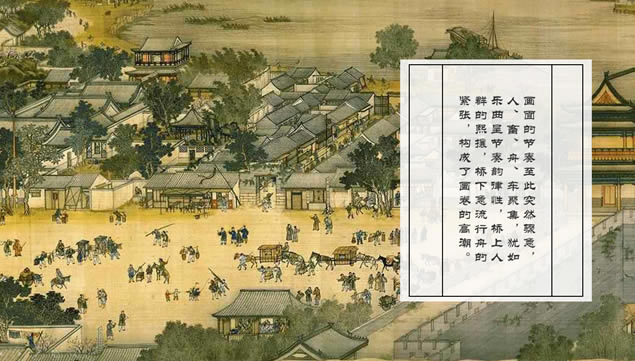 画面的节奏至此突然骤急，
人、畜、舟、车聚集，犹如
乐曲呈节奏韵律性，桥上人
群的熙攘，桥下急流行舟的
紧张，构成了画卷的高潮。